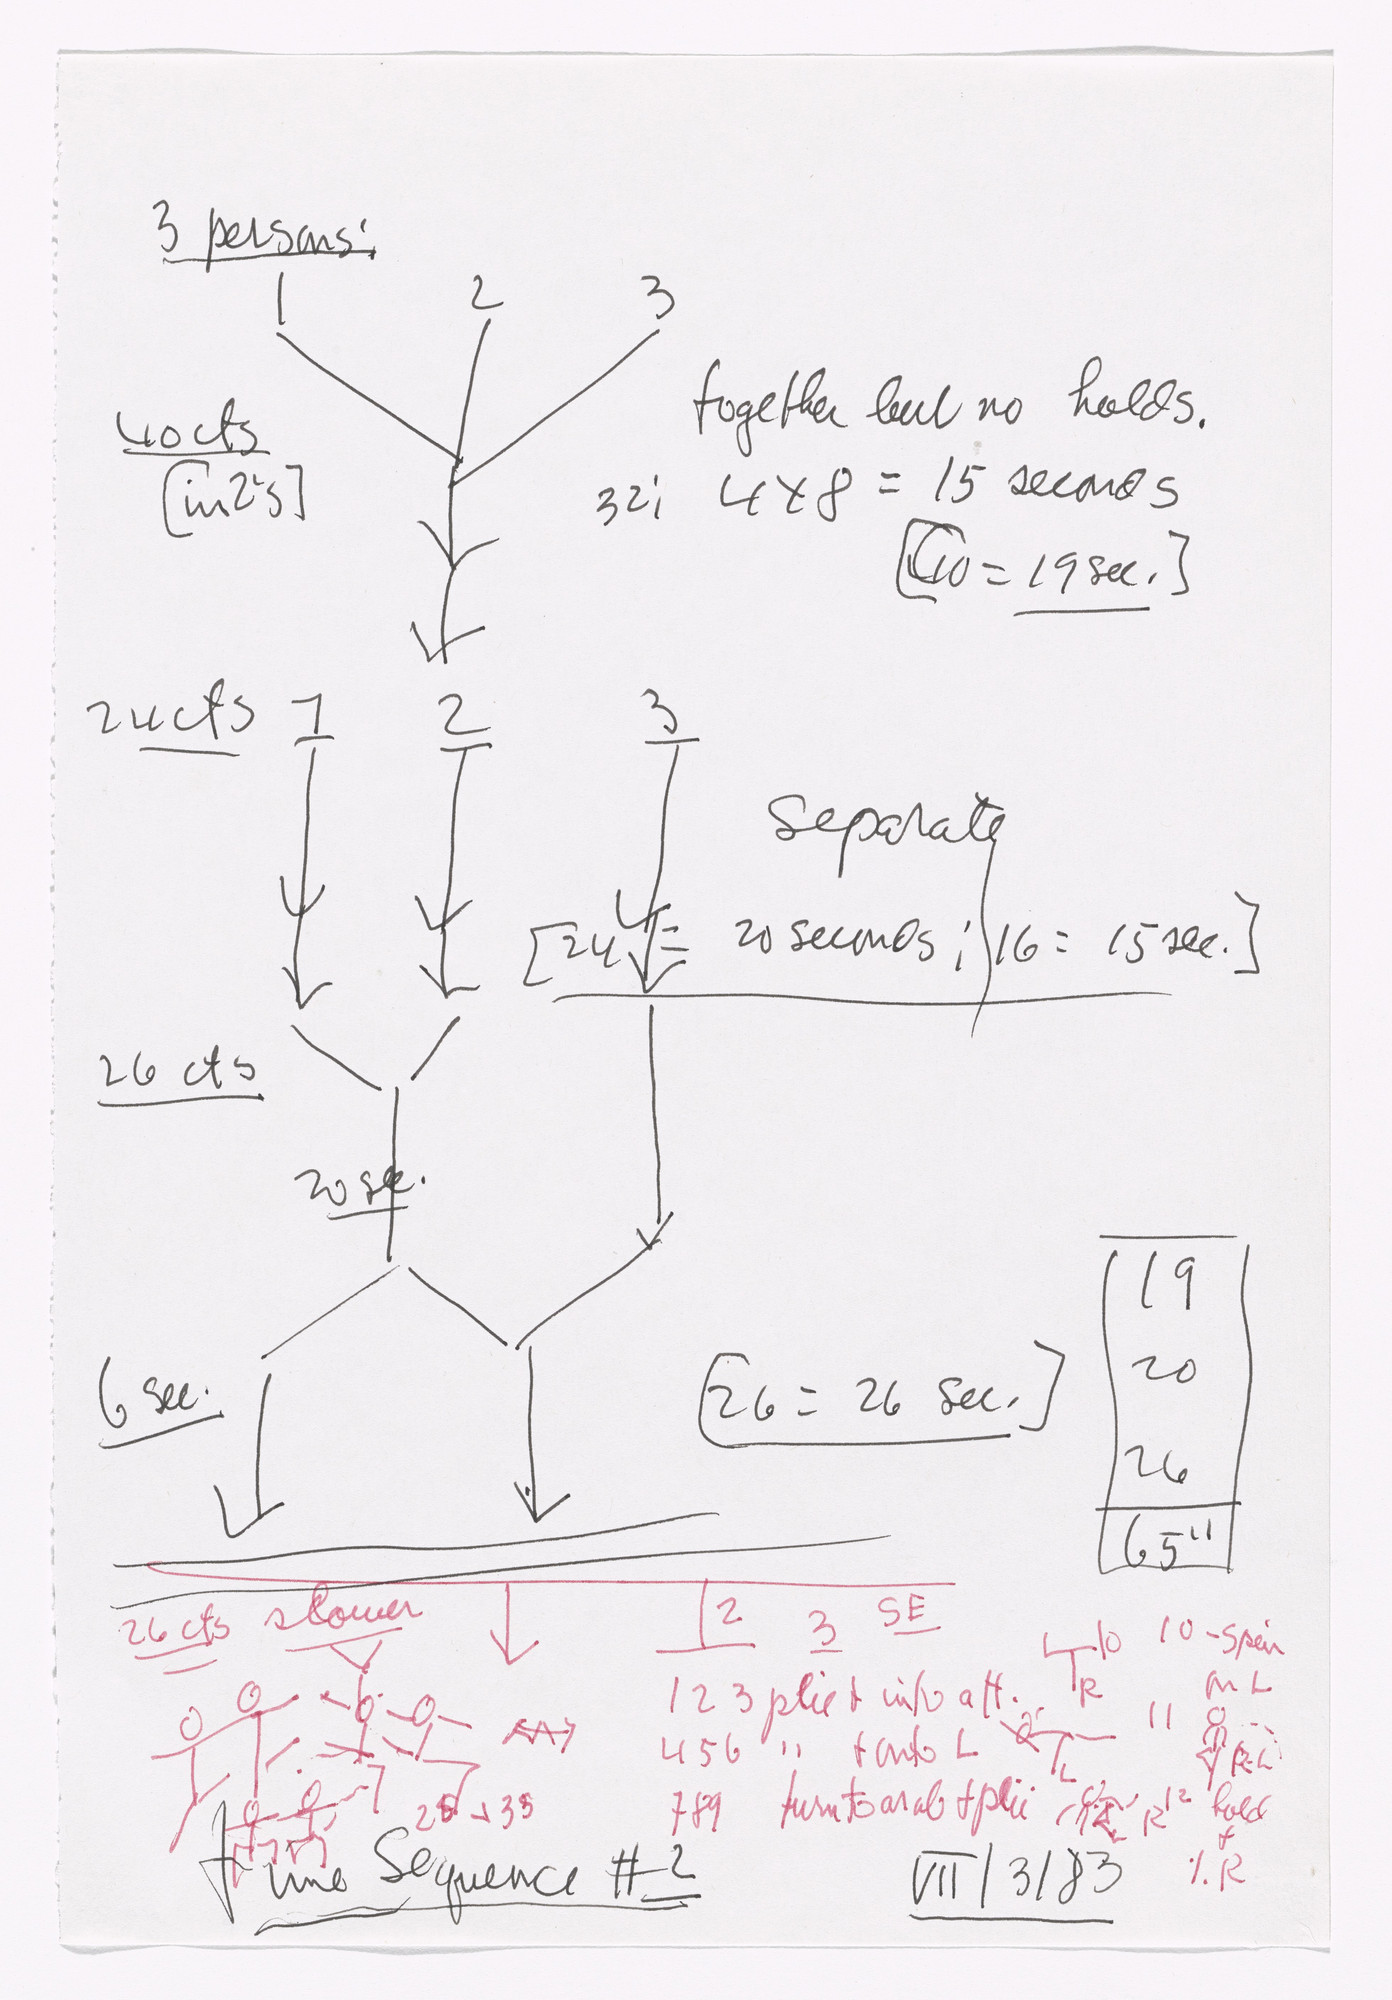 3 persons:
1 2 3
40 cts
[in 2's]
together but no holds.
32; 4 x 8 = 15 seconds
[40 = 19 sec.]
24 cts 1 2 3
separate
[24 = 20 seconds; 16 = 15 sec.]
26 cts
20 sec.
6 sec.
[26 = 26 sec.]
19
20
26
65"
26 cts slower
2 3 SE
1 2 3 plié & into att.
4 5 6 " & onto L
7 8 9 turn to arab & plié
10
R
10 - spin
on L
11
L
R-L
R
12 hold
&
R
Sequence #2
VII/3/83